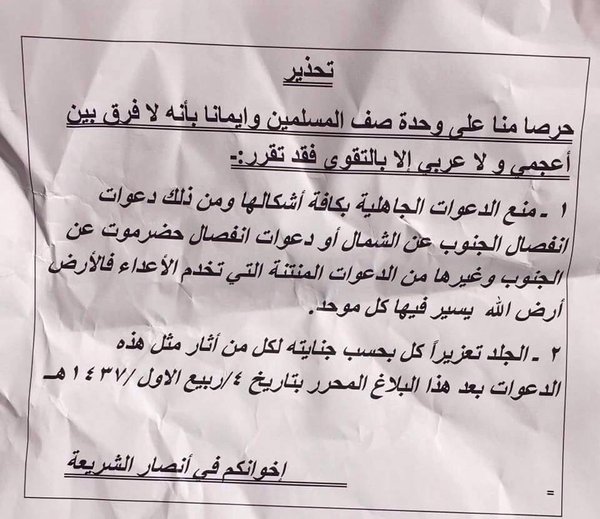 تحذير
حرصا منا على وحدة صف المسلمين وايمانا بأنه لا فرق بين
أعجمي و لا عربي إلا بالتقوى فقد تقرر:-
١ - منع الدعوات الجاهلية بكافة أشكالها ومن ذلك دعوات
انفصال الجنوب عن الشمال أو دعوات انفصال حضرموت عن
الجنوب وغيرها من الدعوات المنتنة التي تخدم الأعداء فالأرض
أرض الله يسير فيها كل موحد.
٢ - الجلد تعزيراً كل بحسب جنايته لكل من أثار مثل هذه
الدعوات بعد هذا البلاغ المحرر بتاريخ ٤/ربيع الاول /١٤٣٧هـ
إخوانكم في أنصار الشريعة
=